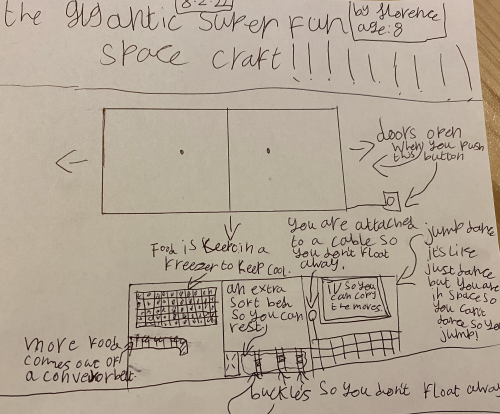 8.2.22
the gigantic super fun
by florence
age:8
space craft!!!!!!!!!
doors open
when you push
this button
Food is keep in a
freezer to keep cool.
you are attached
to a cable so
you don't float
away.
jump dance
it's like
just dance
but you are
in space so
you can't
dance so you
jump!
an extra
sort beh
so you can
rest
TV so you
can copy
the moves.
more food
comes out of
a conveyor belt
buckles so you don't float away